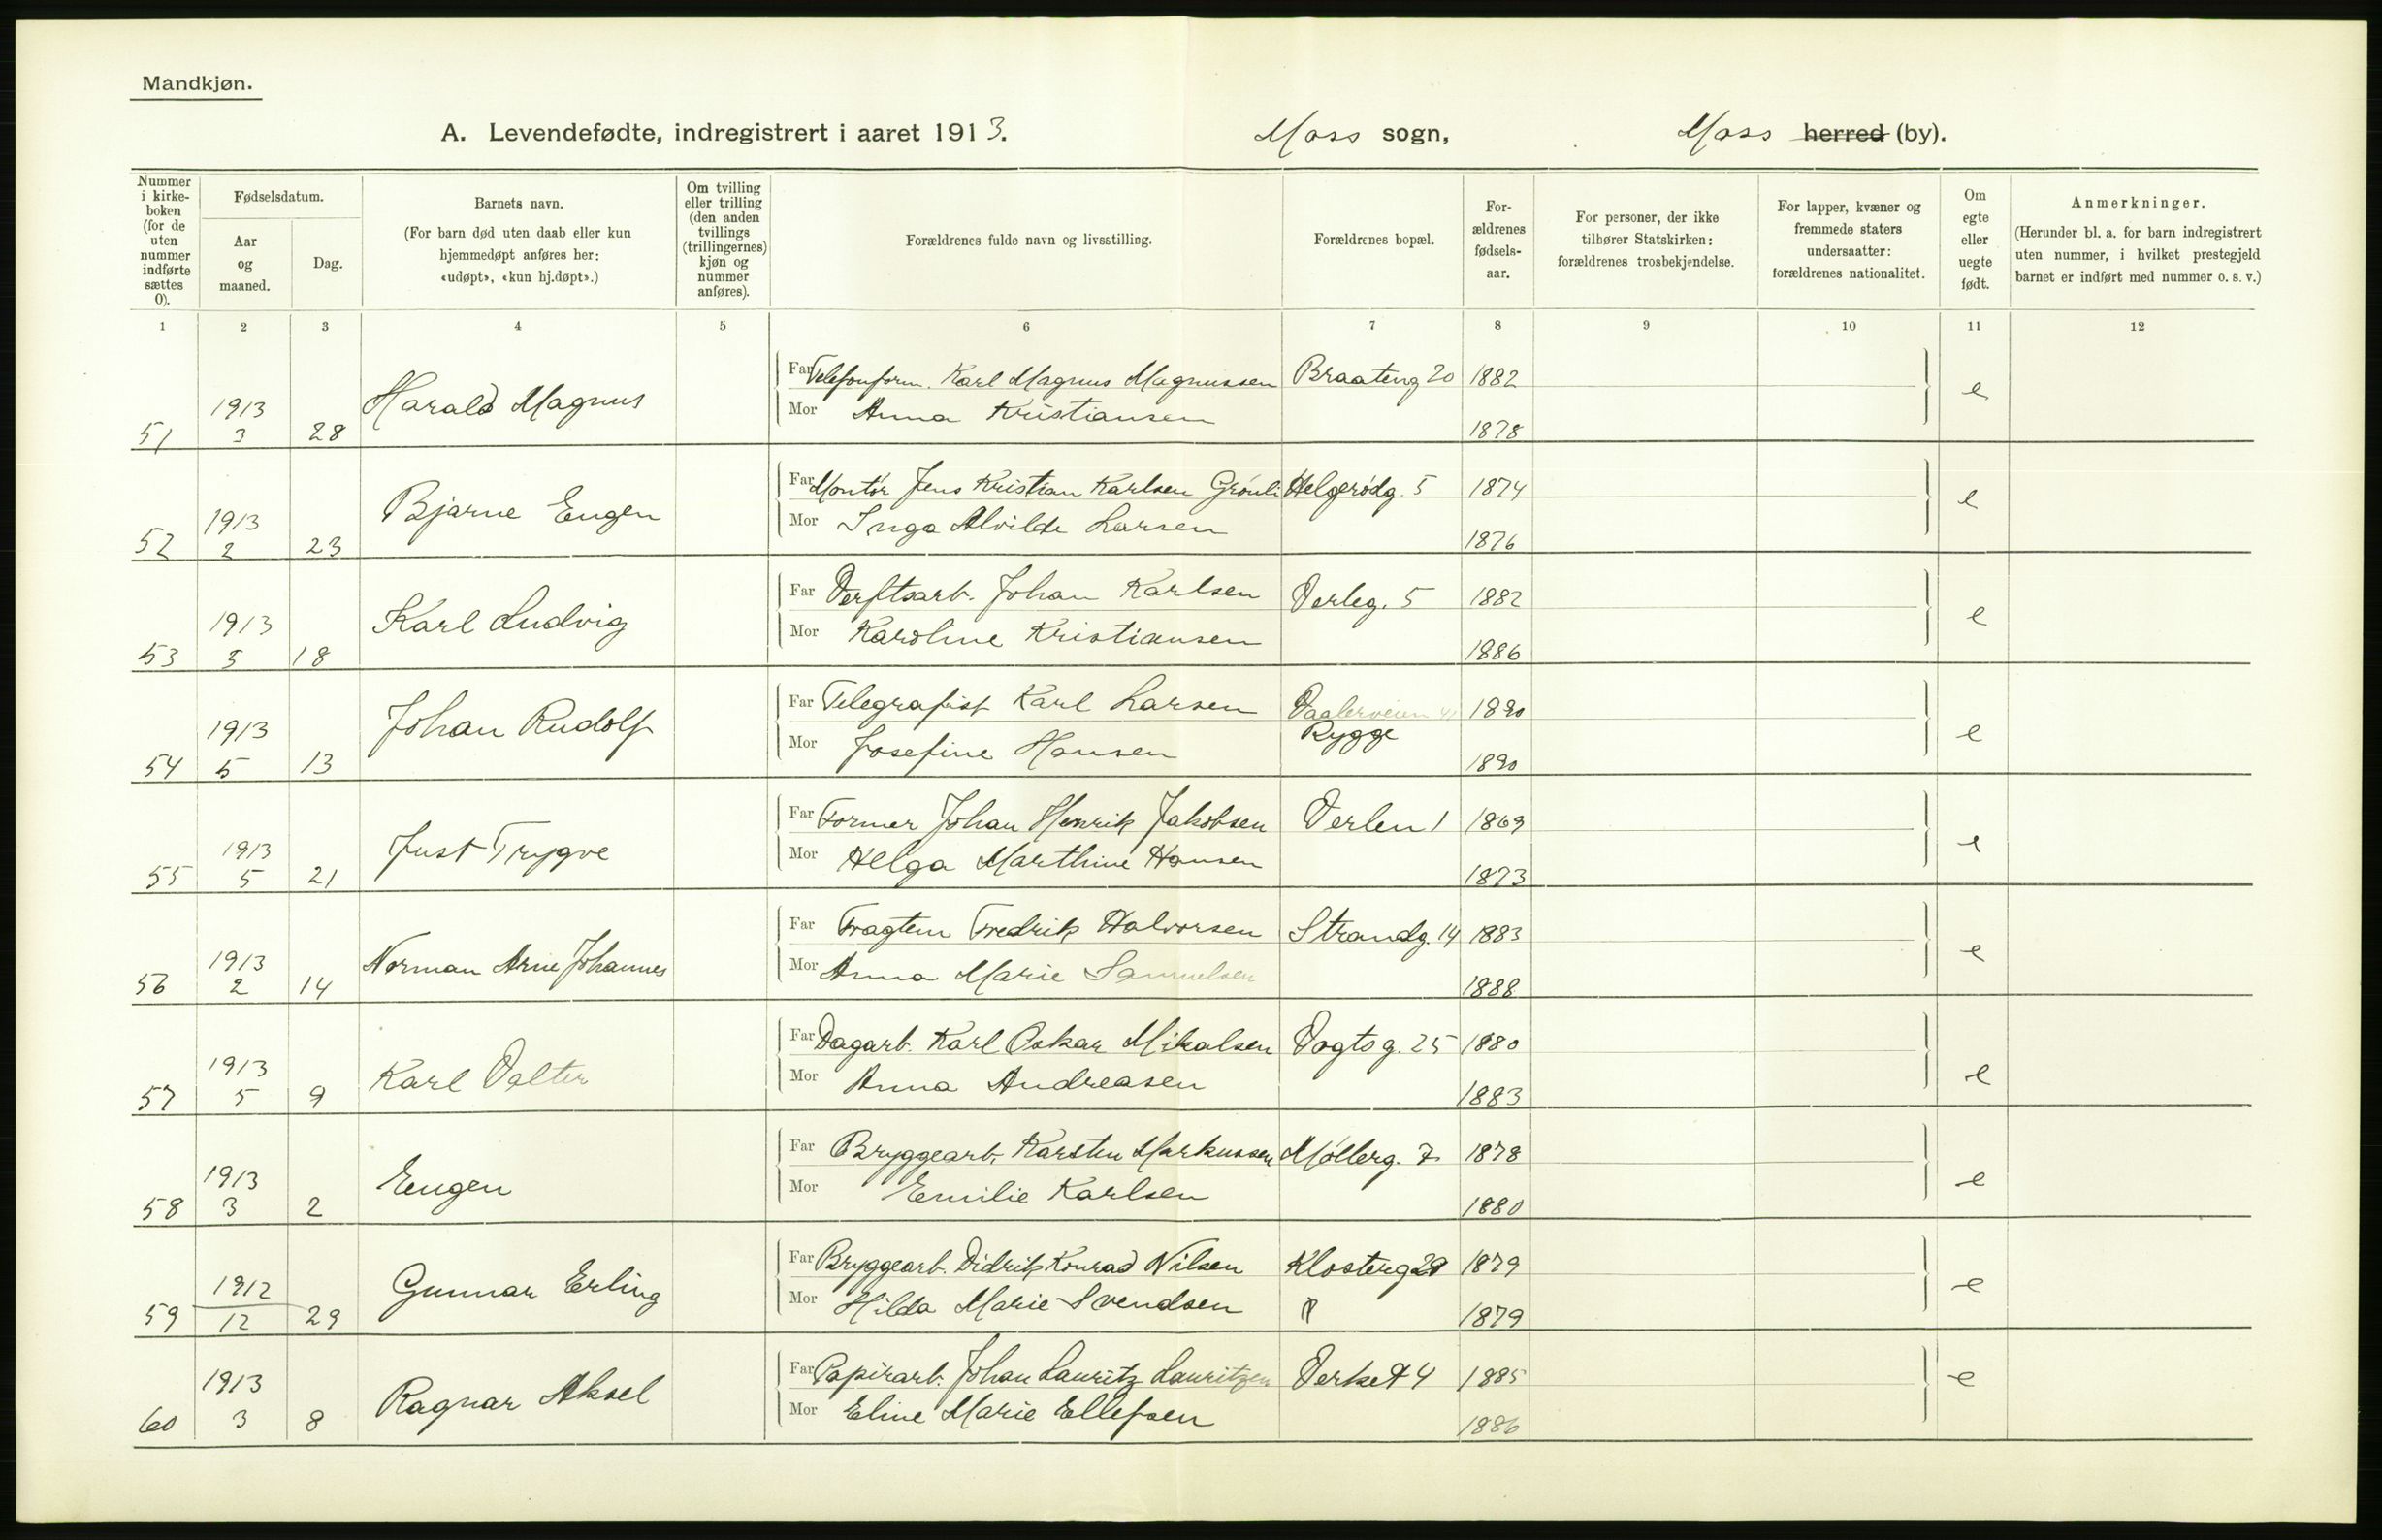 Mandkjøn.
A. Levendefødte, indregistrert i aaret 1913. Moss sogn, Moss herred (by).
Nummer i kirkeboken (for de uten nummer indførte sættes 0).
Fødselsdatum.
Aar og maaned.
Dag.
Barnets navn.
(For barn død uten daab eller kun hjemmedøpt anføres her: «udøpt», «kun hj.døpt».)
Om tvilling eller trilling (den anden tvillings (trillingernes) kjøn og nummer anføres).
Forældrenes fulde navn og livsstilling.
Forældrenes bopæl.
Forældrenes fødselsaar.
For personer, der ikke tilhører Statskirken: forældrenes trosbekjendelse.
For lapper, kvæner og fremmede staters undersaatter: forældrenes nationalitet.
Om egte eller uegte født.
Anmerkninger.
(Herunder bl. a. for barn indregistrert uten nummer, i hvilket prestegjeld barnet er indført med nummer o. s. v.)
1 2 3 4 5 6 7 8 9 10 11 12
51 1913 3 28 Harald Magnus
Far Telefonform. Karl Magnus Magnussen Braateng 20 1882 e
Mor Anna Kristiansen 1878
52 1913 2 23 Bjarne Eugen
Far Montör Jens Kristian Karlsen Grönli Helgerödg. 5 1874 e
Mor Inga Alvilde Larsen 1876
53 1913 5 18 Karl Ludvig
Far Verftsarb. Johan Karlsen Verleg. 5 1882 e
Mor Karoline Kristiansen 1886
54 1913 5 13 Johan Rudolf
Far Telegrafist Karl Larsen Vaalerveien 41 Rygge 1890 e
Mor Josefine Hansen 1890
55 1913 5 21 Just Trygve
Far Former Johan Henrik Jakobsen Verlen 1 1869 e
Mor Helga Marthine Hansen 1873
56 1913 2 14 Norman Arne Johannes
Far Fragtem Fredrik Halvorsen Strandg. 14 1883 e
Mor Anna Marie Samuelsen 1888
57 1913 5 9 Karl Valter
Far Dagarb. Karl Oskar Mikalsen Vogtsg. 25 1880 e
Mor Anna Andreasen 1883
58 1913 3 2 Eugen
Far Bryggearb. Karsten Markussen Möllerg. 7 1878 e
Mor Emilie Karlsen 1880
59 1912 12 29 Gunnar Erling
Far Bryggearb. Didrik Konrad Nilsen Klosterg 29 1879 e
Mor Hilda Marie Svendsen 1879
60 1913 3 8 Ragnar Aksel
Far Papirarb. Johan Lauritz Lauritzen Verket 4 1885 e
Mor Eline Marie Ellefsen 1886